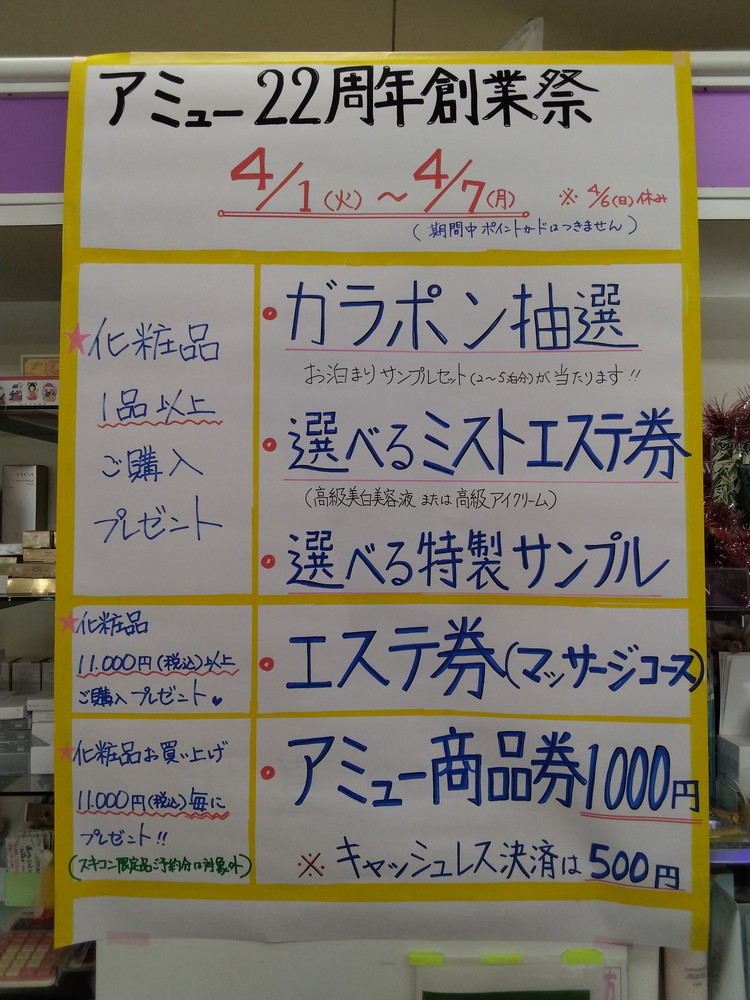 アミュー22周年創業祭
4/1(火)～4/7(月) ※4/6(日)休み
(期間中ポイントカードはつきません)
★化粧品
1品以上
ご購入
プレゼント
・ガラポン抽選
お泊まりサンプルセット(2～5泊分)が当たります!!
・選べるミストエステ券
(高級美白美容液または高級アイクリーム)
・選べる特製サンプル
★化粧品
11.000円(税込)以上
ご購入プレゼント♥
・エステ券(マッサージコース)
★化粧品お買い上げ
11.000円(税込)毎に
プレゼント!!
(スキコン限定品ご予約分は対象外)
・アミュー商品券1000円
※キャッシュレス決済は500円